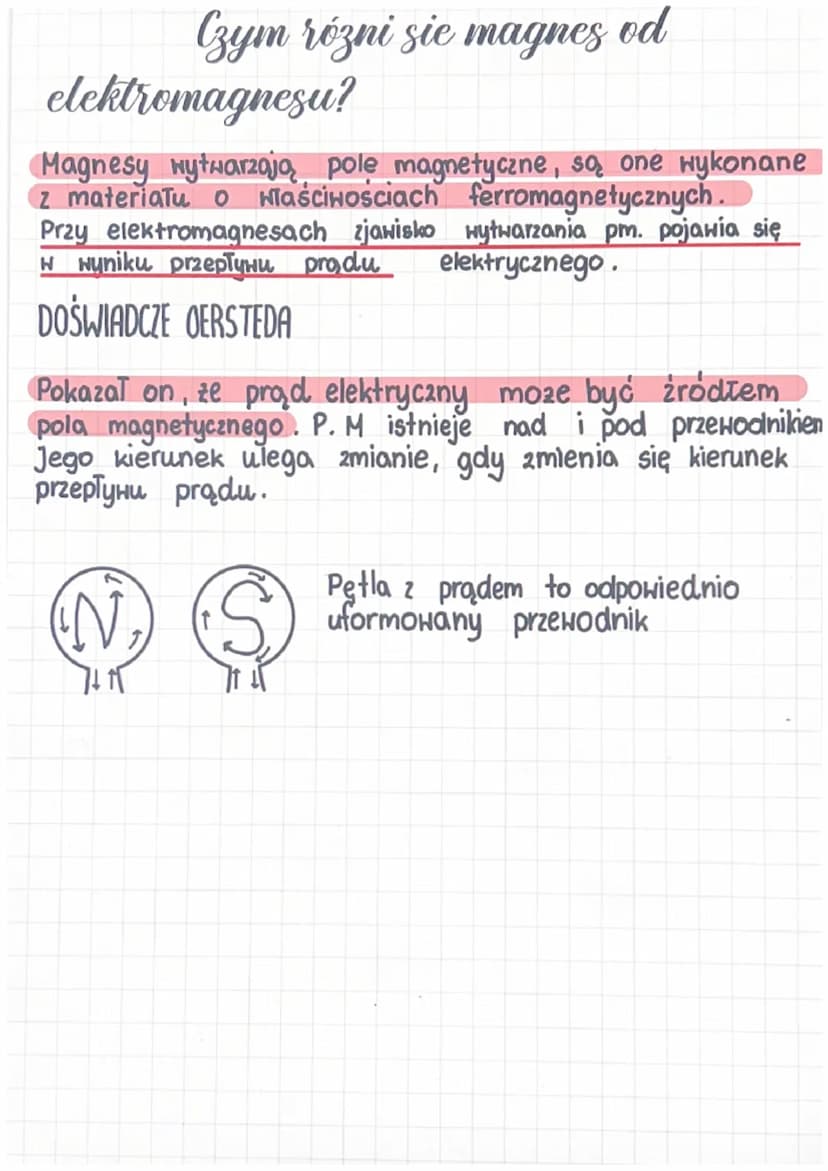 Czym rózni sie magnes od
elektromagnesu?
Magnesy wytwarzają pole magnetyczne, są one wykonane
z materiału o właściwościach ferromagnetycznych.
Przy elektromagnesach zjawisko wytwarzania pm. pojawia się
w wyniku przepływu prądu elektrycznego.
DOŚWIADCZE OERSTEDA
Pokazał on, że prąd elektryczny może być źródłem
pola magnetycznego. P. M istnieje nad i pod przewodnikiem
Jego kierunek ulega zmianie, gdy zmienia się kierunek
przepływu prądu.
N S Pętla z prądem to odpowiednio
uformowany przewodnik